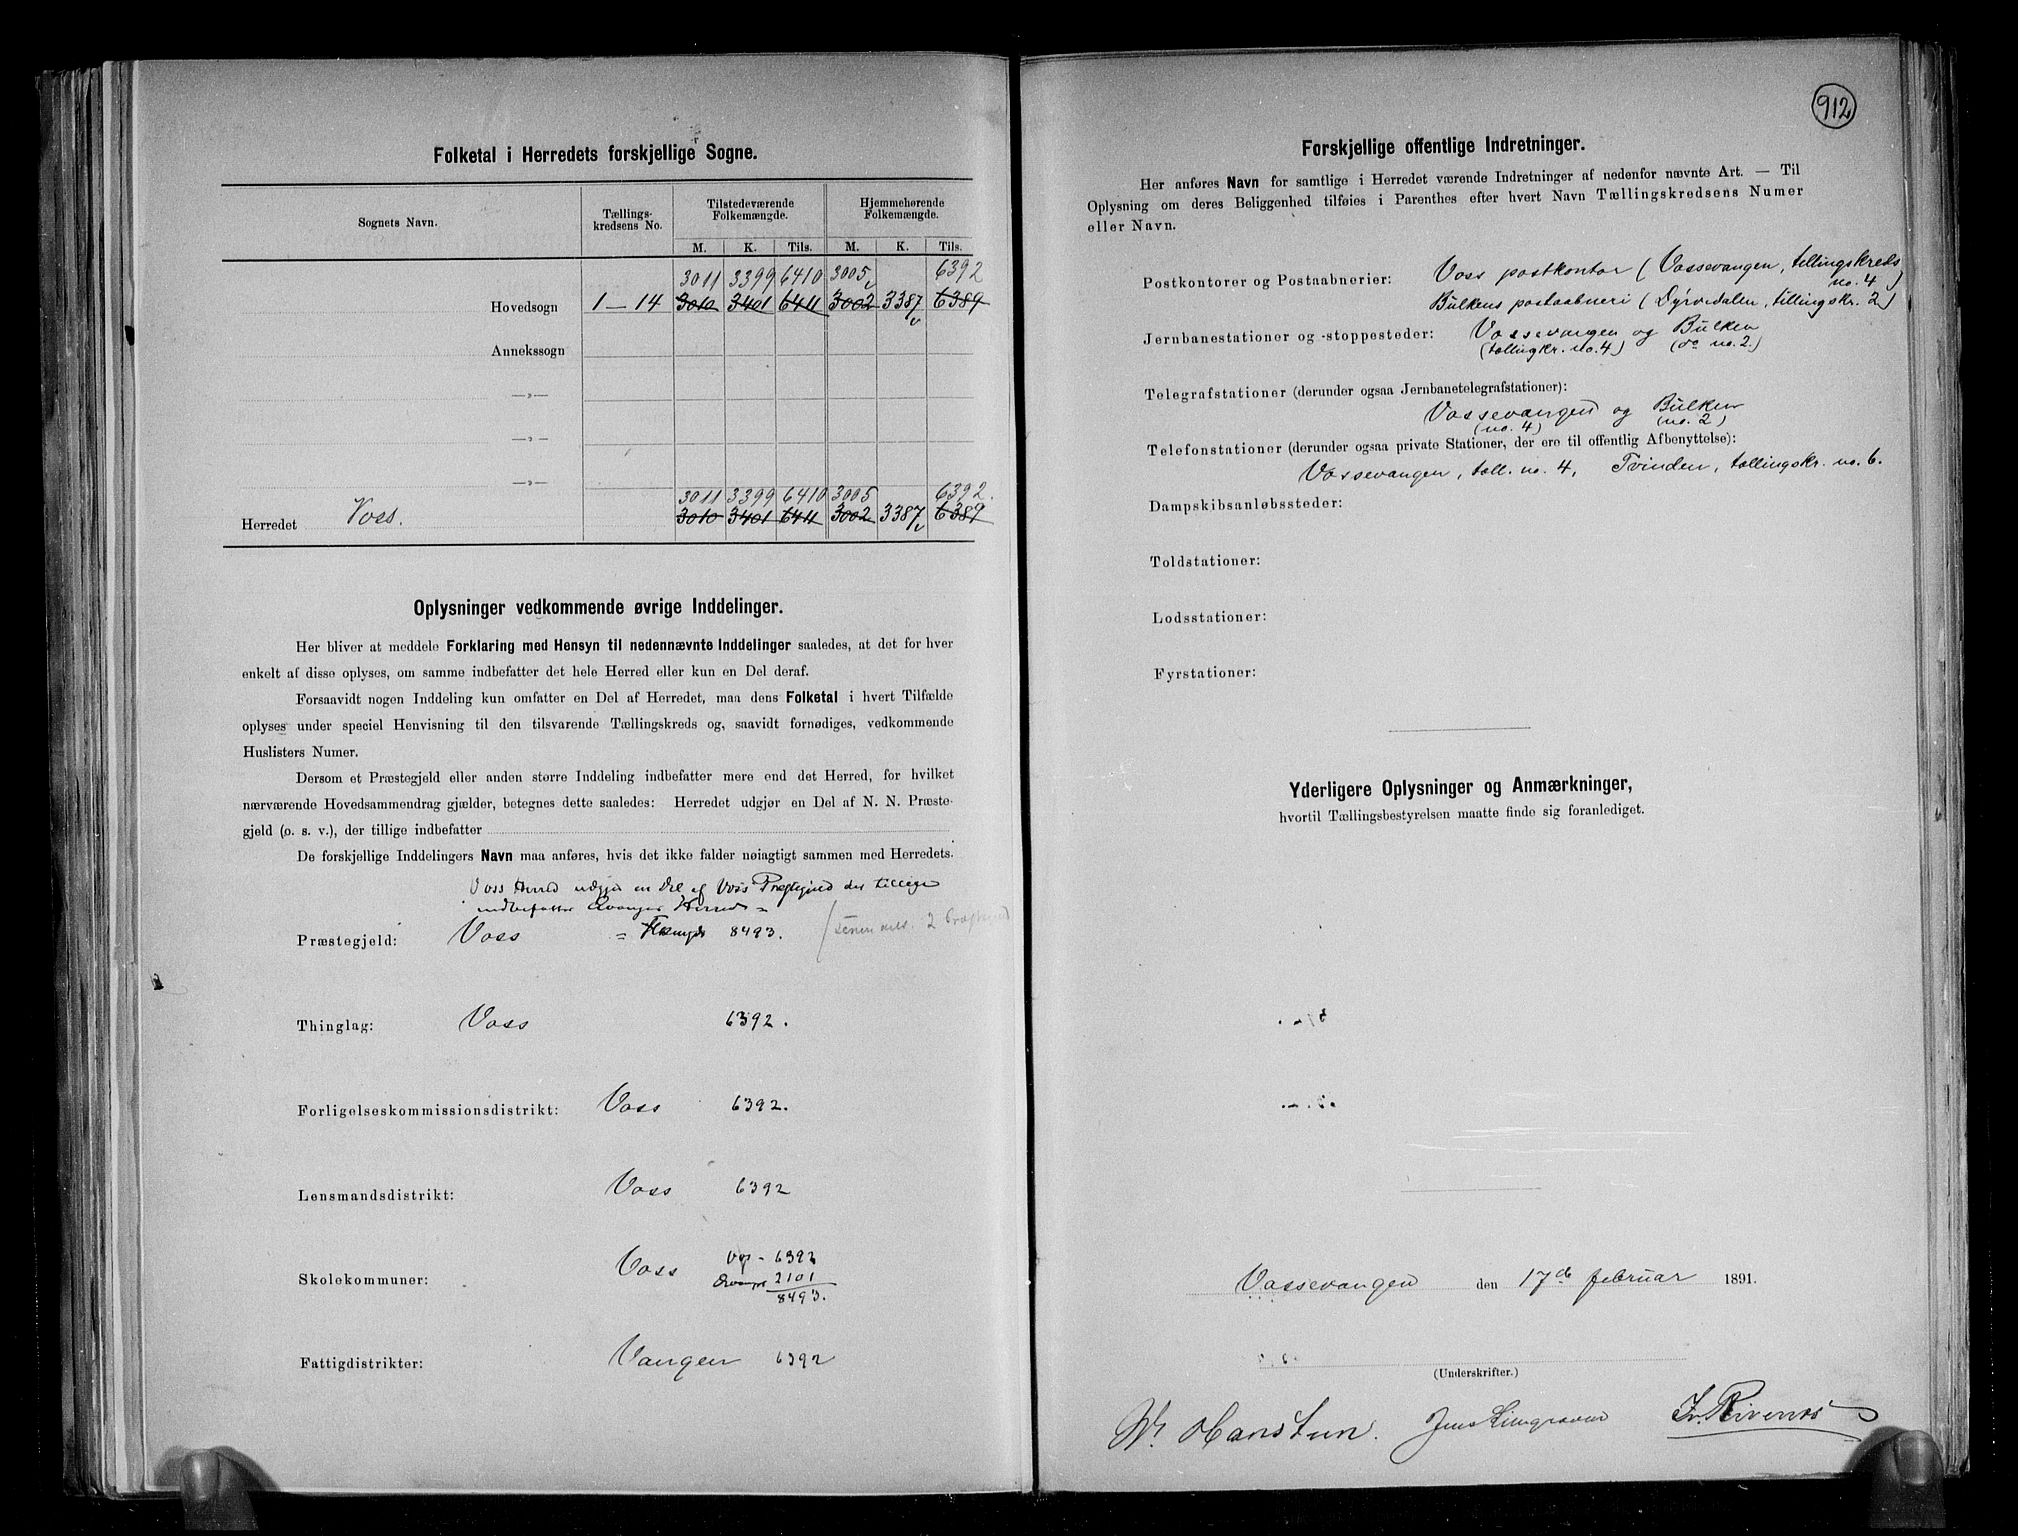 Folketal i Herredets forskjellige Sogne.
Sognets Navn.
Tællings-
kredsens No.
Tilstedeværende
Folkemængde.
Hjemmehørende
Folkemængde.
M. K. Tils. M. K. Tils.
3011 3399 6410 3005 6392
Hovedsogn 1-14 3010 3401 6411 3002 3387 6389
Annekssogn
—»—
—»—
—»—
3011 3399 6410 3005 6392.
Herredet Voss. 3010 3401 6411 3002 3387 6389
Oplysninger vedkommende øvrige Inddelinger.
Her bliver at meddele Forklaring med Hensyn til nedennævnte Inddelinger saaledes, at det for hver
enkelt af disse oplyses, om samme indbefatter det hele Herred eller kun en Del deraf.
Forsaavidt nogen Inddeling kun omfatter en Del af Herredet, maa dens Folketal i hvert Tilfælde
oplyses under speciel Henvisning til den tilsvarende Tællingskreds og, saavidt fornødiges, vedkommende
Huslisters Numer.
Dersom et Præstegjeld eller anden større Inddeling indbefatter mere end det Herred, for hvilket
nærværende Hovedsammendrag gjælder, betegnes dette saaledes: Herredet udgjør en Del af N. N. Præste-
gjeld (o. s. v.), der tillige indbefatter
De forskjellige Inddelingers Navn maa anføres, hvis det ikke falder nøiagtigt sammen med Herredets.
Voss Herred udgjør en Del af Voss Præstegjeld der tillige
indbefatter Evanger Herred
Præstegjeld: Voss 8493. 2
Thinglag: Voss 6392.
Forligelseskommissionsdistrikt: Voss 6392.
Lensmandsdistrikt: Voss 6392
Voss - 6392
Skolekommuner: Voss Evanger 2101
8493.
Fattigdistrikter: Vangen 6392
912
Forskjellige offentlige Indretninger.
Her anføres Navn for samtlige i Herredet værende Indretninger af nedenfor nævnte Art. — Til
Oplysning om deres Beliggenhed tilføies i Parenthes efter hvert Navn Tællingskredsens Numer
eller Navn.
Postkontorer og Postaabnerier: Voss postkontor (Vossevangen, tællingskreds
no. 4)
Bulkens postaabneri (Dyrvedalen, tællingskr. 2)
Jernbanestationer og -stoppesteder: Vossevangen og Bulken
(tællingkr. no. 4) (do no. 2.)
Telegrafstationer (derunder ogsaa Jernbanetelegrafstationer):
Vossevangen og Bulken
(no. 4) (no. 2)
Telefonstationer (derunder ogsaa private Stationer, der ere til offentlig Afbenyttelse):
Vossevangen, tæll. no. 4, Tvinden, tællingskr. no. 6.
Dampskibsanløbssteder:
Toldstationer:
Lodsstationer:
Fyrstationer:
Yderligere Oplysninger og Anmærkninger,
hvortil Tællingsbestyrelsen maatte finde sig foranlediget.
Vossevangen den 17de februar 1891.
(Underskrifter.)